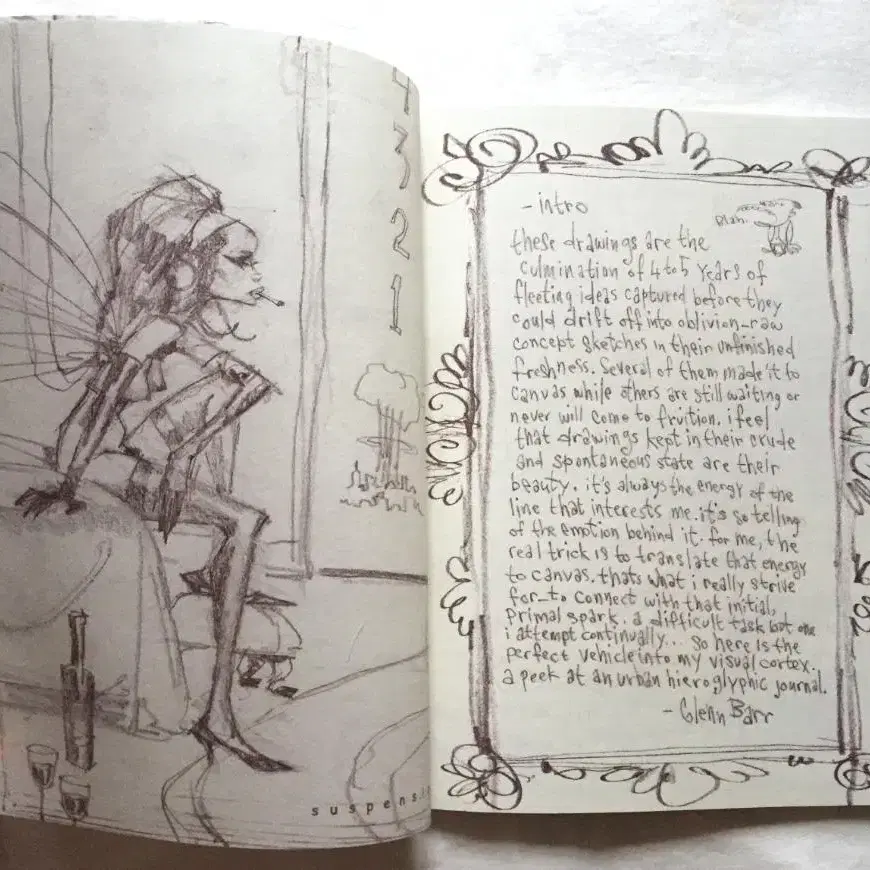 4
3
2
1
suspens
- intro
blah.
these drawings are the
culmination of 4 to 5 years of
fleeting ideas captured before they
could drift off into oblivion_raw
concept sketches in their unfinished
freshness. Several of them made it to
canvas while others are still waiting or
never will come to fruition. i feel
that drawings kept in their crude
and spontaneous state are their
beauty. it's always the energy of the
line that interests me. it's so telling
of the emotion behind it. for me, the
real trick is to translate that energy
to canvas. thats what i really strive
for_to connect with that initial,
primal spark. a difficult task but one
i attempt continually... so here is the
perfect vehicle into my visual cortex.,
a peek at an urban hieroglyphic journal.
- Glenn Barr